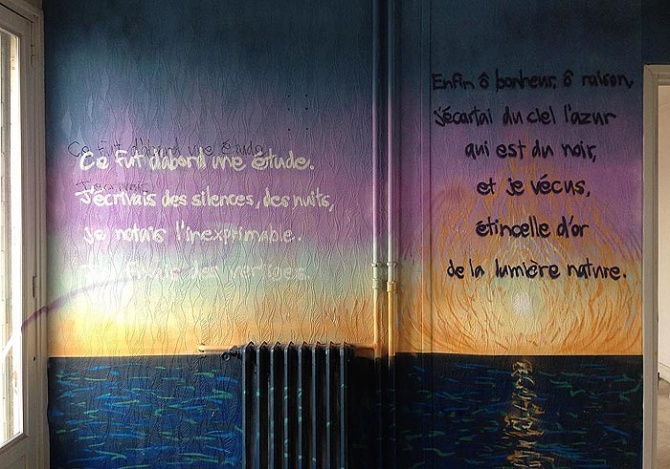 Ce fut d'abord une étude
Ce fut d'abord une étude.
J'écrivais
J'écrivais des silences, des nuits,
je notais l'inexprimable.
des vertiges.
Enfin ô bonheur, ô raison,
j'écartai du ciel l'azur
qui est du noir,
et je vécus,
étincelle d'or
de la lumière nature.